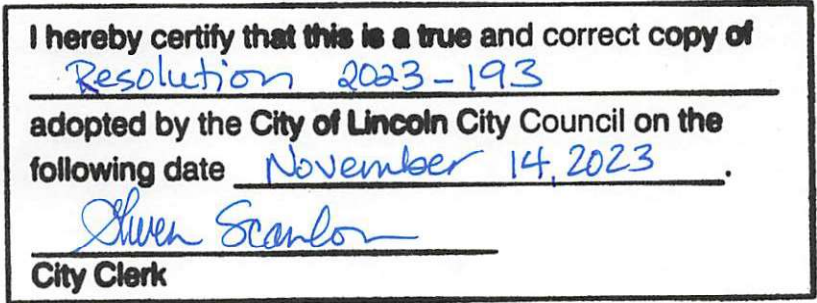 I hereby certify that this is a true and correct copy of
Resolution 2023-193
adopted by the City of Lincoln City Council on the
following date November 14, 2023.
Gwen Scanlon
City Clerk